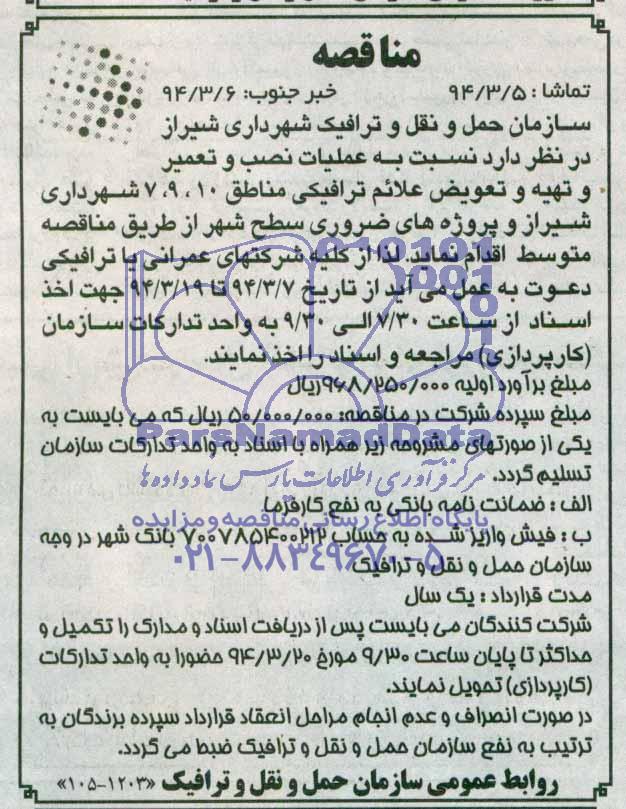 مناقصه
تماشا: ۹۴/۳/۵ خبر جنوب: ۹۴/۳/۶
سازمان حمل و نقل و ترافیک شهرداری شیراز
در نظر دارد نسبت به عملیات نصب و تعمیر
و تهیه و تعویض علائم ترافیکی مناطق ۷،۹،۱۰ شهرداری
شیراز و پروژه های ضروری سطح شهر از طریق مناقصه
متوسط اقدام نماید. لذا از کلیه شرکتهای عمرانی یا ترافیکی
دعوت به عمل می آید از تاریخ ۹۴/۳/۷ تا ۹۴/۳/۱۹ جهت اخذ
اسناد از ساعت ۷/۳۰ الی ۹/۳۰ به واحد تدارکات سازمان
(کارپردازی) مراجعه و اسناد را اخذ نمایند.
مبلغ برآورد اولیه ۹۶۸/۲۵۰/۰۰۰ریال
مبلغ سپرده شرکت در مناقصه: ۵۰/۰۰۰/۰۰۰ ریال که می بایست به
یکی از صورتهای مشروحه زیر همراه با اسناد به واحد تدارکات سازمان
تسلیم گردد.
الف : ضمانت نامه بانکی به نفع کارفرما
ب : فیش واریز شده به حساب ۷۰۰۷۸۵۴۰۰۲۱۲ بانک شهر در وجه
سازمان حمل و نقل و ترافیک
مدت قرارداد : یک سال
شرکت کنندگان می بایست پس از دریافت اسناد و مدارک را تکمیل و
حداکثر تا پایان ساعت ۹/۳۰ مورخ ۹۴/۳/۲۰ حضورا به واحد تدارکات
(کارپردازی) تحویل نمایند.
در صورت انصراف و عدم انجام مراحل انعقاد قرارداد سپرده برندگان به
ترتیب به نفع سازمان حمل و نقل و ترافیک ضبط می گردد.
روابط عمومی سازمان حمل و نقل و ترافیک «۱۲۰۳-۱۰۵»
ParsNamadData
مرکز فرآوری اطلاعات پارس نماد داده ها
پایگاه اطلاع رسانی مناقصه و مزایده
۰۲۱-۸۸۳۴۹۶۷۰-۵